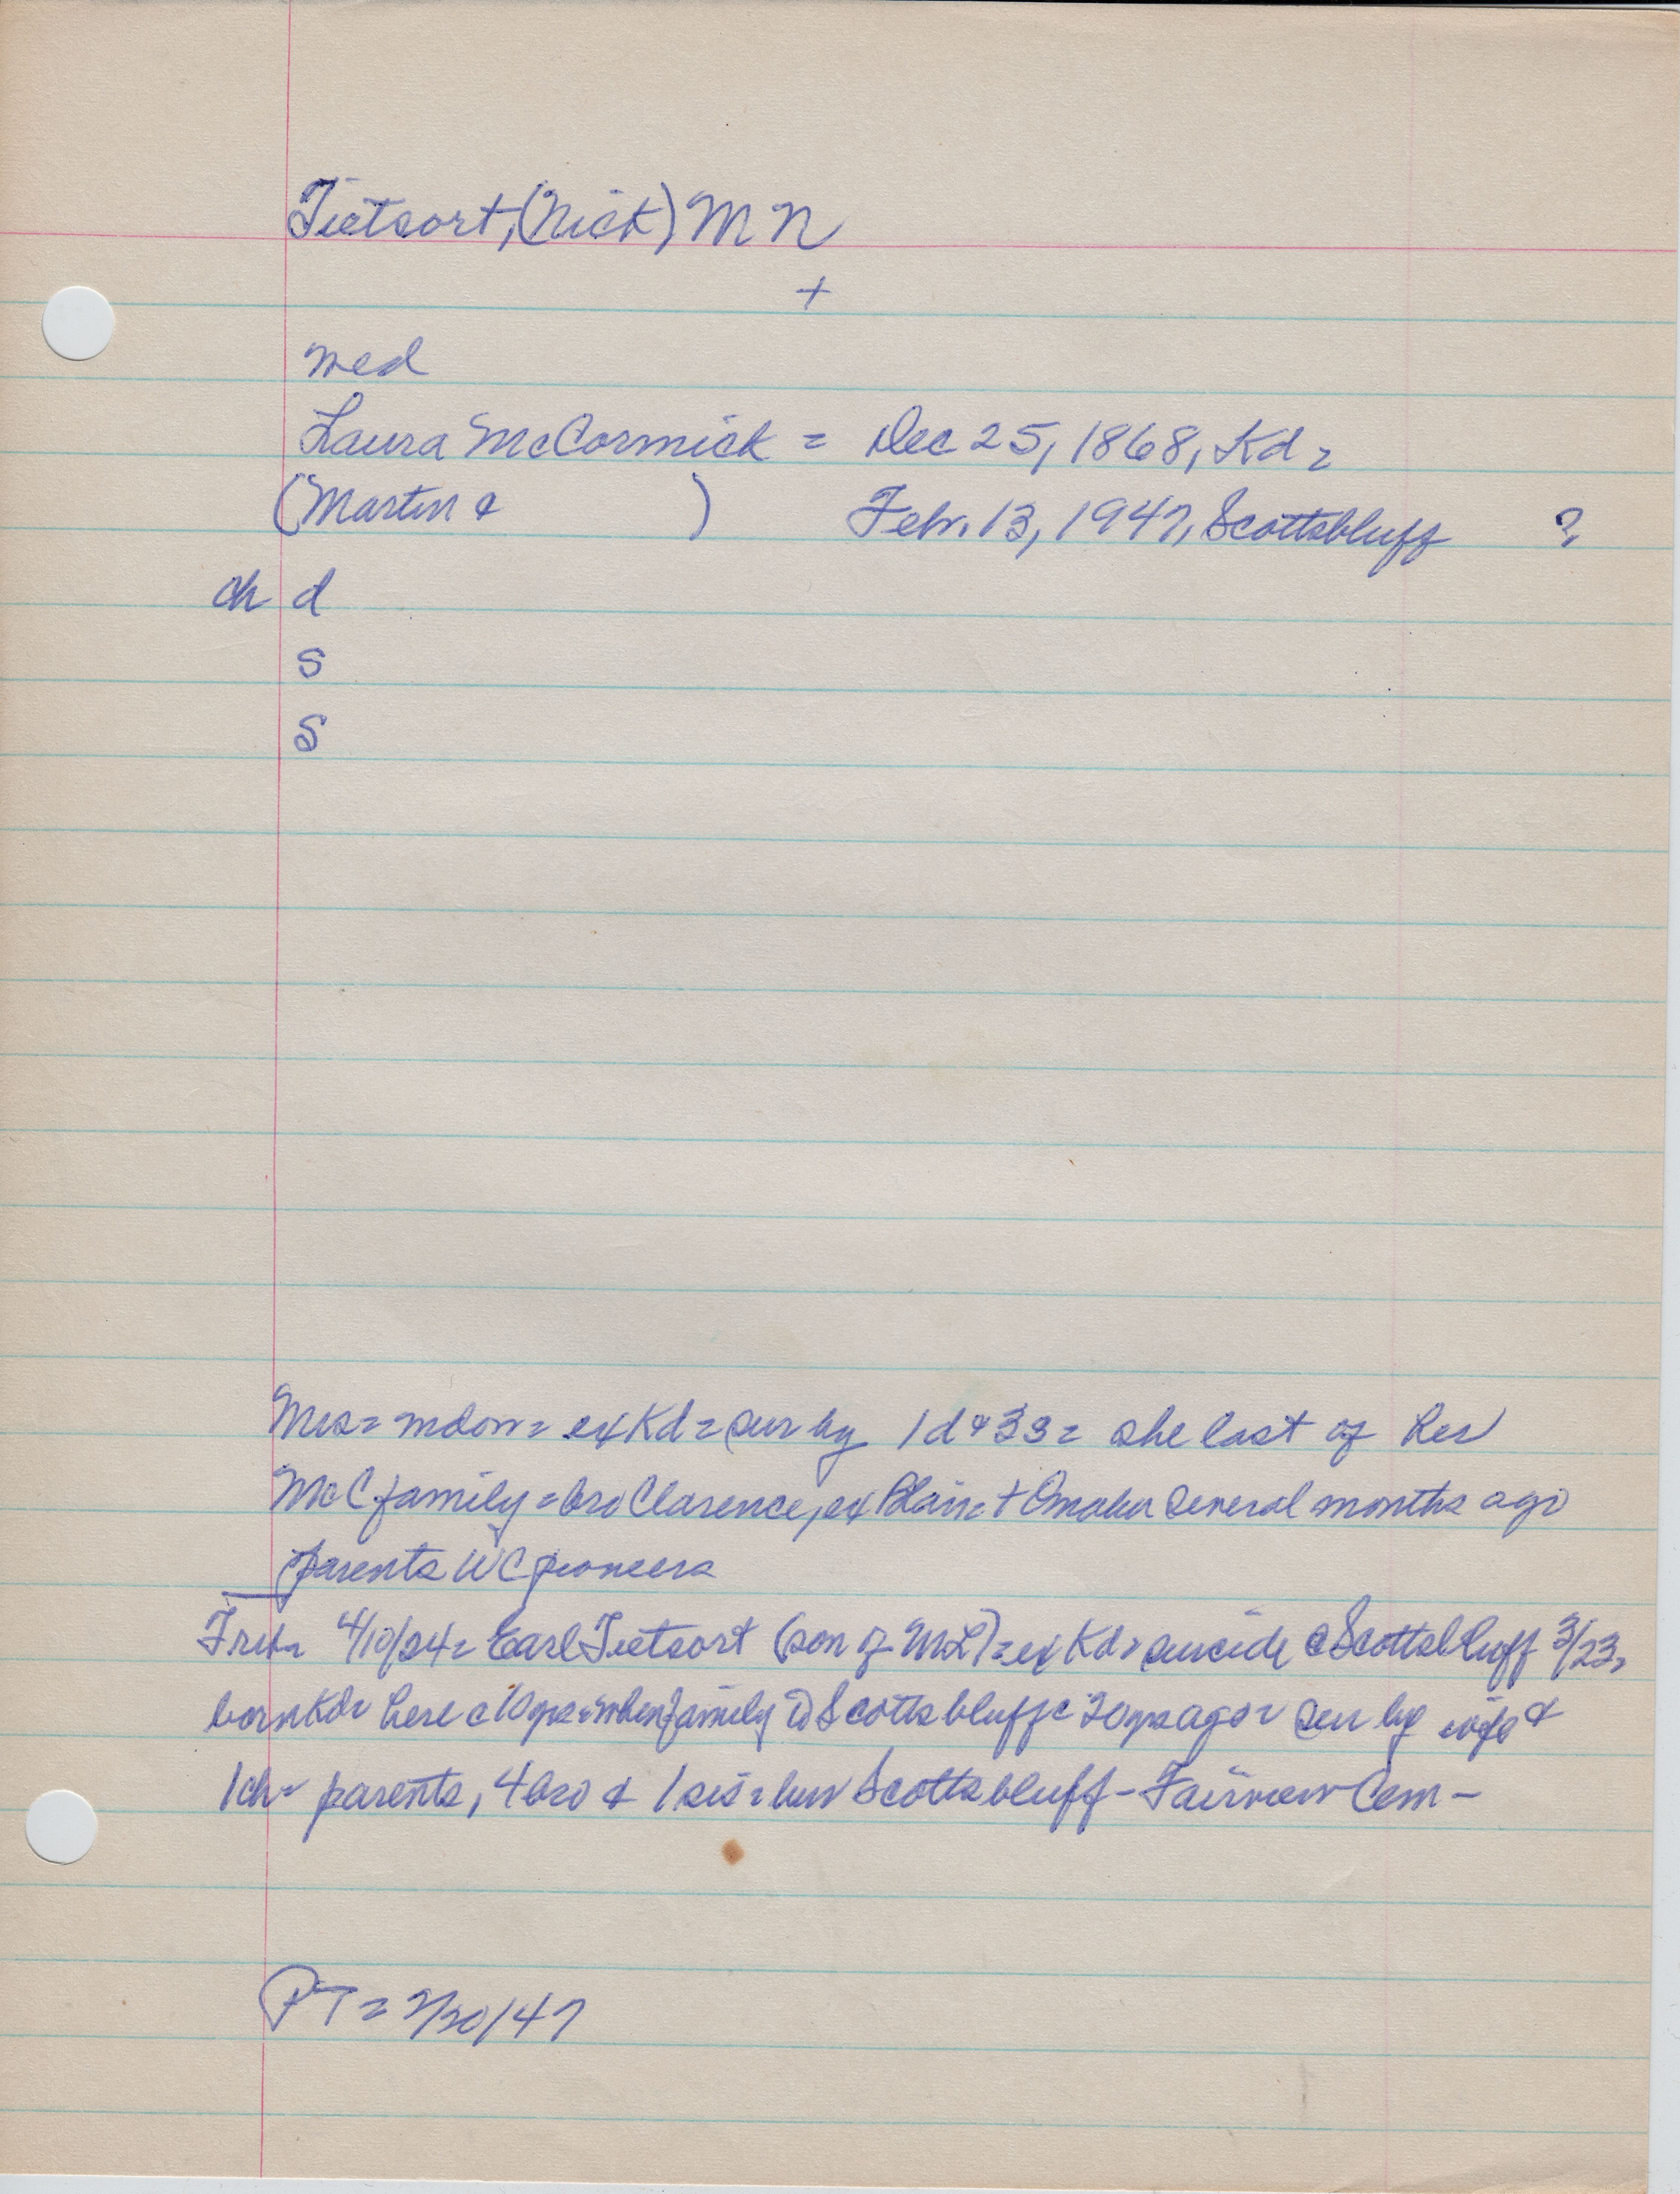 Tietsort, (Nick) M N
+
med
Laura McCormick = Dec 25, 1868, Kd =
(Martin &                ) Febr. 13, 1947, Scottsbluff ?
ch d
s
s
Mrs = = ex Kd = sur by 1 d & 3 s = she last of her
McC family = bro Clarence, ex Blair = + Omaha several months ago
parents WC pioneers
4/10/24 = Earl Tietsort (son of ML) = ex Kd = suicide @ Scottsbluff 3/23,
born Kd = here c 10 yrs = when family Scottsbluff c 20 yrs ago = sur by wife &
1 ch = parents, 4 bro & 1 sis = bur Scottsbluff - Fairview Cem -
PT = 2/20/47